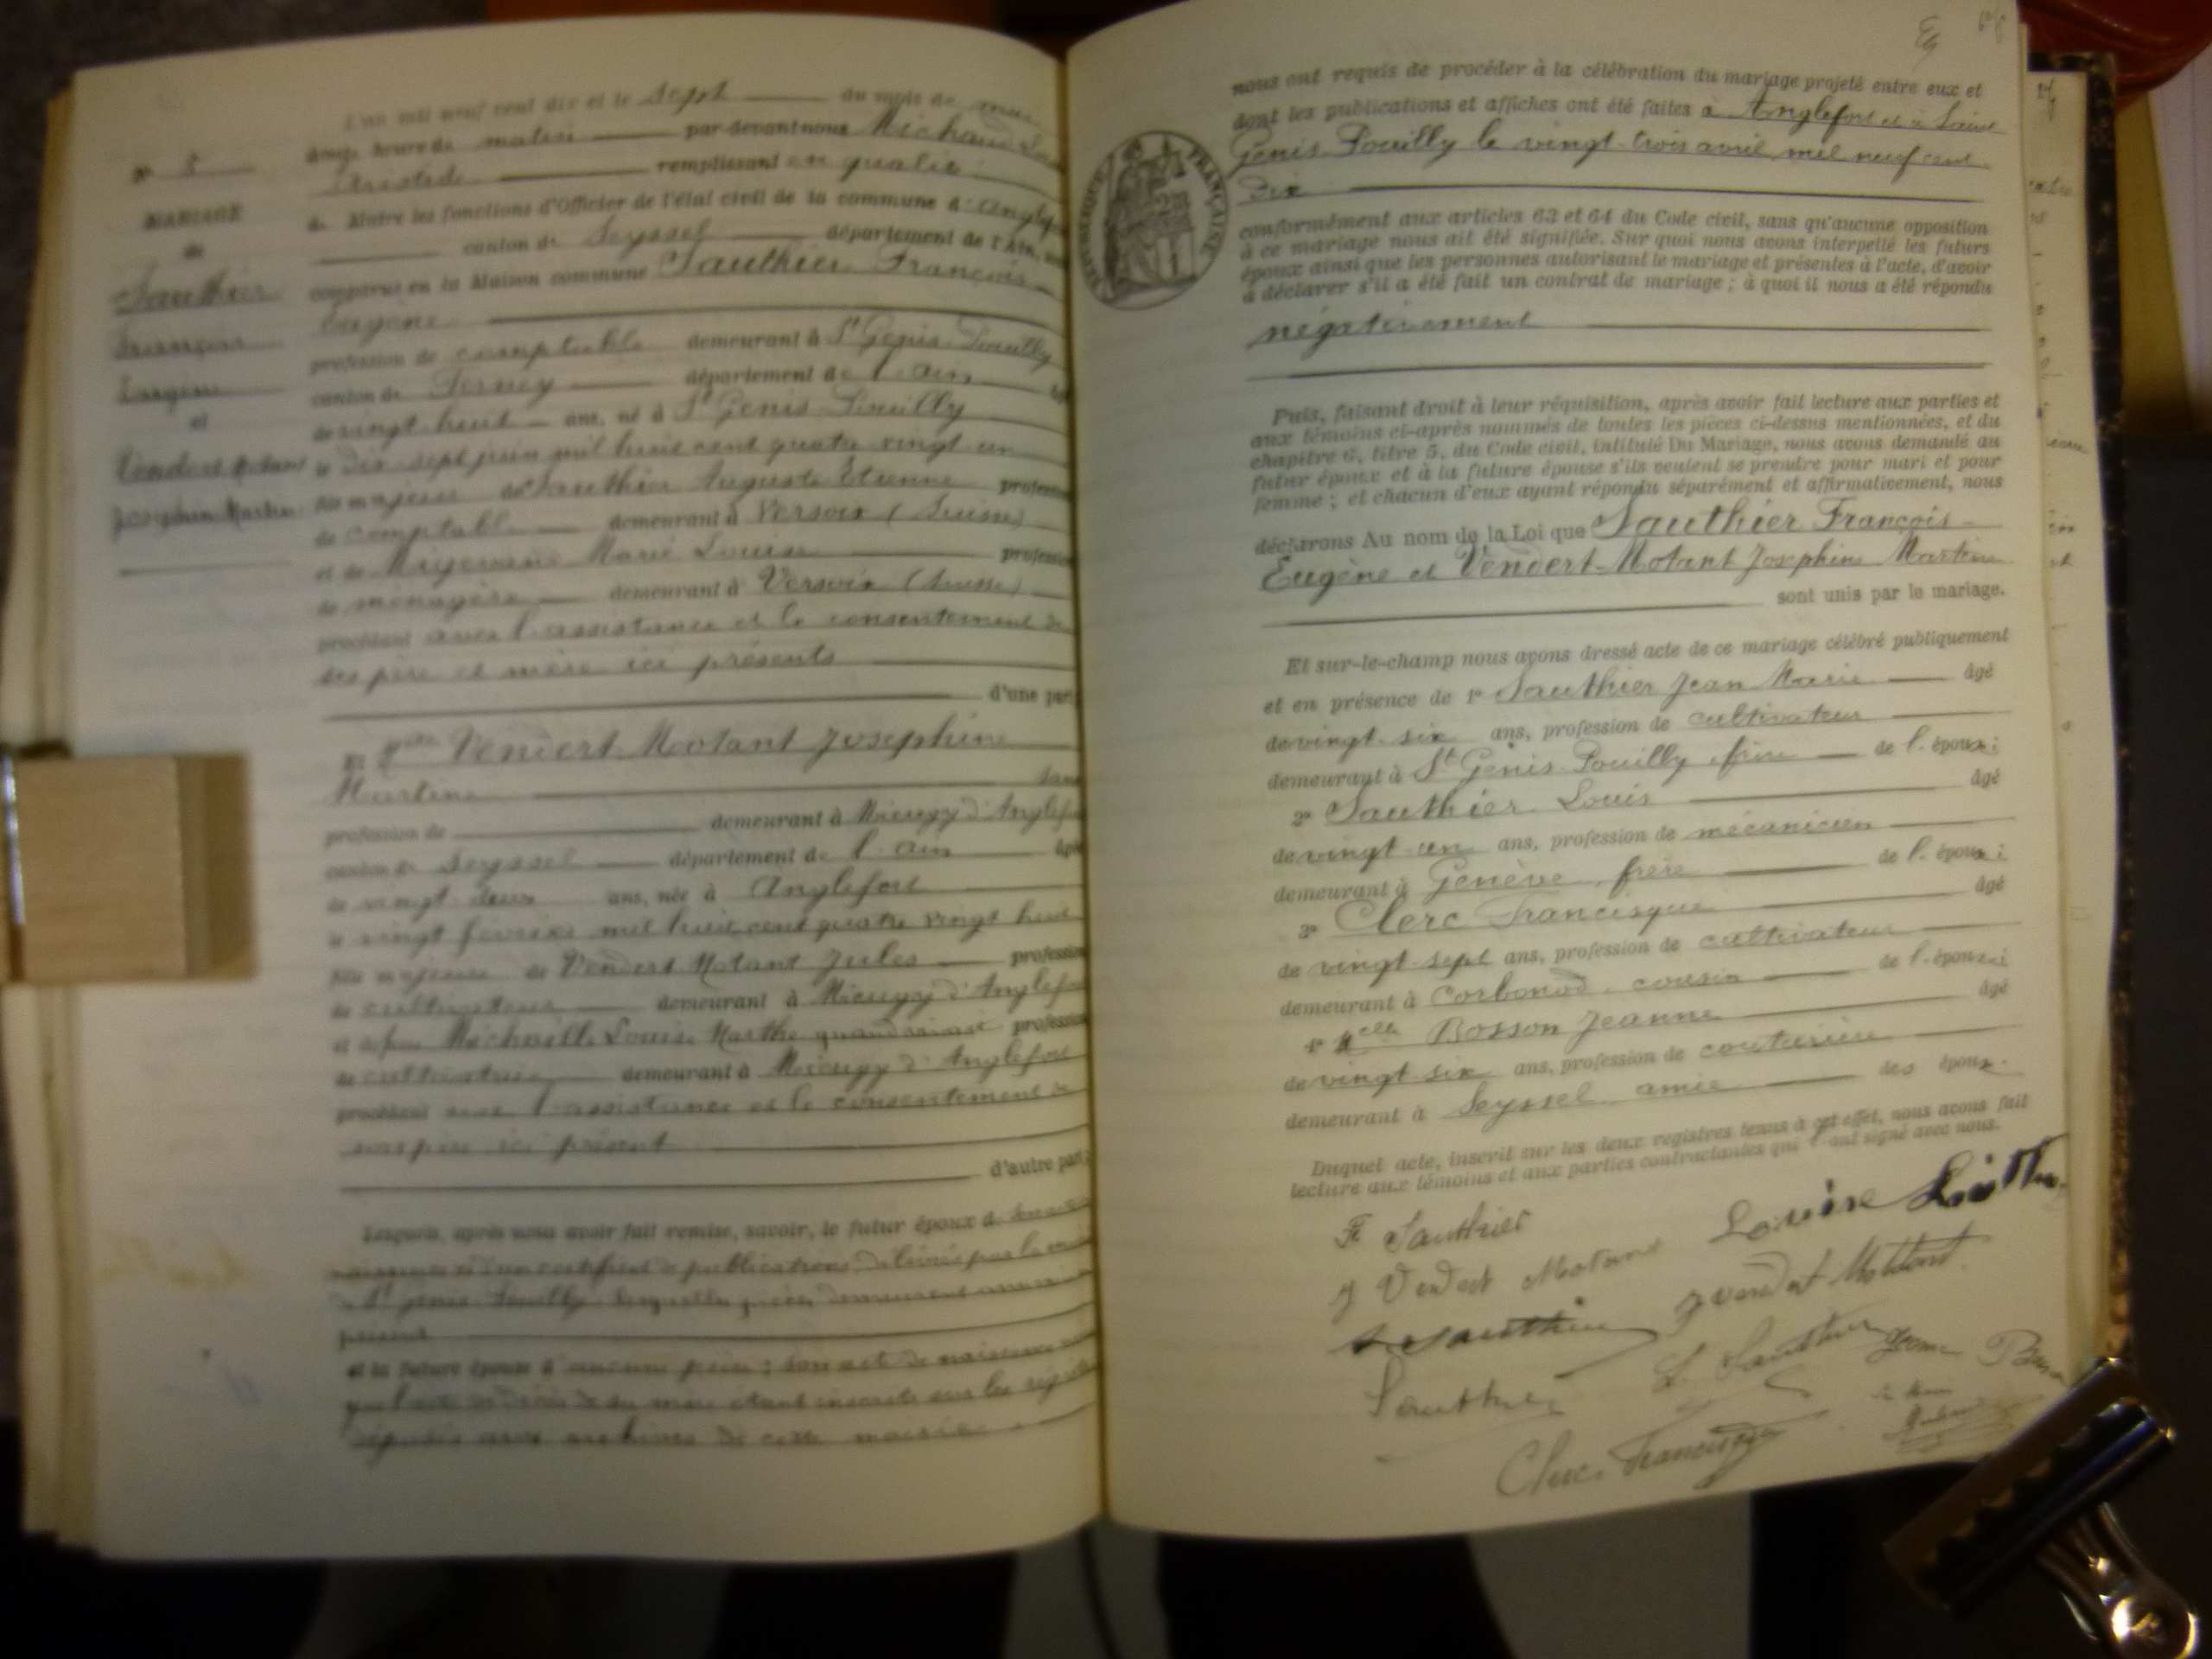 L'an mil neuf cent dix et le sept du mois de mai
heure du matin par-devant nous Michaud
Aristide remplissant en qualité
de Maire les fonctions d'Officier de l'état civil de la commune d'Anglefort
canton de Seyssel département de l'Ain,
comparus en la Maison commune Sauthier François
Eugène
profession de comptable demeurant à St Genis-Pouilly
canton de Ferney département de l'ain
de vingt huit ans, né à St Genis Pouilly
le dix sept juin mil huit cent quatre vingt un
fils majeur de Sauthier Auguste Etienne profession
de comptable demeurant à Versoix (Suisse)
et de Marie Louise profession
de ménagère demeurant à Versoix (Suisse)
procédant avec l'assistance et le consentement de
ses père et mère ici présents
d'une part;
N° 8
MARIAGE
de
Sauthier
François
Eugène
et
Vendert Motant
Joséphine Martine
Et Melle Vendert-Motant Joséphine
Martine sans
profession de demeurant à Mieugy d'Anglefort
canton de Seyssel département de l'ain âgée
de vingt deux ans, née à Anglefort
le vingt février mil huit cent quatre vingt huit
fille majeure de Vendert Motant Jules profession
de cultivateur demeurant à Mieugy d'Anglefort
et de feue Louise Marthe quand vivait profession
de cultivatrice demeurant à Mieugy d'Anglefort
procédant avec l'assistance et le consentement de
son père ici présent
d'autre part;
Lesquels, après nous avoir fait remise, savoir, le futur époux de son acte de
naissance et d'un certificat de publications délivrés par le maire
de St genis Pouilly lesquelles pièces demeurent
présent
et la future épouse d'aucune pièce; son acte de naissance ainsi
que l'acte de décès de sa mère étant inscrits sur les registres
déposés aux archives de cette mairie
nous ont requis de procéder à la célébration du mariage projeté entre eux et
dont les publications et affiches ont été faites à Anglefort et à Saint
Genis-Pouilly le vingt-trois avril mil neuf cent
Dix
RÉPUBLIQUE FRANÇAISE
conformément aux articles 63 et 64 du Code civil, sans qu'aucune opposition
à ce mariage nous ait été signifiée. Sur quoi nous avons interpellé les futurs
époux ainsi que les personnes autorisant le mariage et présentes à l'acte, d'avoir
à déclarer s'il a été fait un contrat de mariage; à quoi il nous a été répondu
négativement
Puis, faisant droit à leur réquisition, après avoir fait lecture aux parties et
aux témoins ci-après nommés de toutes les pièces ci-dessus mentionnées, et du
chapitre 6, titre 5, du Code civil, intitulé Du Mariage, nous avons demandé au
futur époux et à la future épouse s'ils veulent se prendre pour mari et pour
femme; et chacun d'eux ayant répondu séparément et affirmativement, nous
déclarons Au nom de la Loi que Sauthier François
Eugène et Vendert-Motant Joséphine Martine
sont unis par le mariage.
Et sur-le-champ nous avons dressé acte de ce mariage célébré publiquement
et en présence de 1° Sauthier Jean Marie âgé
de vingt-six ans, profession de cultivateur
demeurant à St Genis-Pouilly, frère de l'époux;
2° Sauthier Louis âgé
de vingt-un ans, profession de mécanicien
demeurant à Genève, frère de l'époux;
3° Clerc Francisque âgé
de vingt sept ans, profession de cultivateur
demeurant à Corbonod, cousin de l'épouse;
4° Melle Bosson Jeanne âgé
de vingt six ans, profession de couturière
demeurant à Seyssel amie des époux.
Duquel acte, inscrit sur les deux registres tenus à cet effet, nous avons fait
lecture aux témoins et aux parties contractantes qui l'ont signé avec nous.
F. Sauthier
Louise
J Vendert Motant
J Vendert Motant
Sauthier
L. Sauthier
Jeanne
Sauthier
Clerc Francisque